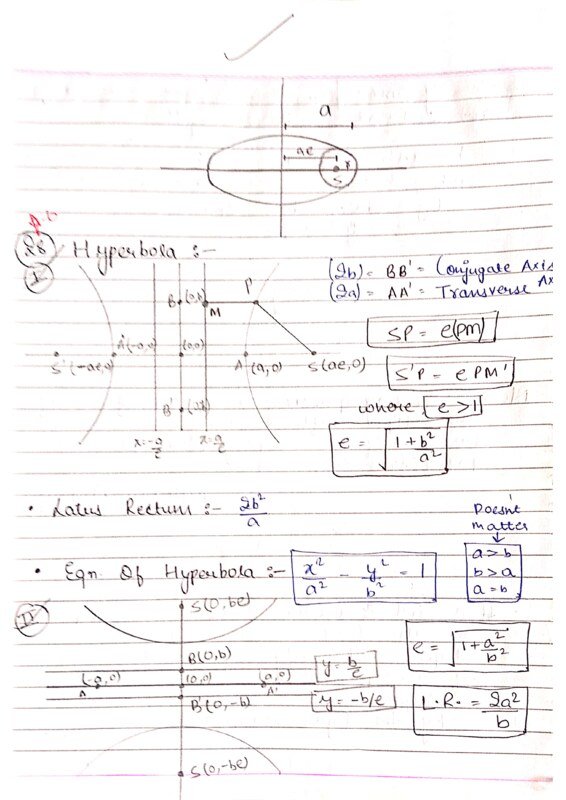 a
ae
S
28
Hyperbola :-
I
(2b) = BB' = Conjugate Axis
(2a) = AA' = Transverse Ax
B (0,b) M P
SP = e(PM)
A' (-a,0) (0,0) A (a,0) S(ae,0)
S' (-ae,0)
S'P = e PM'
B'
where e > 1
x = -a/e x = a/e
e = √(1 + b²/a²)
• Latus Rectum :- 2b²/a
Doesn't
matter
• Eqn. Of Hyperbola :- x²/a² - y²/b² = 1
a > b
b > a
a = b
II
S(0, be)
e = √(1 + a²/b²)
B(0, b)
y = b/e
(-a,0) (0,0) (a,0)
A A'
B'(0, -b)
y = -b/e
L.R. = 2a²/b
S(0, -be)